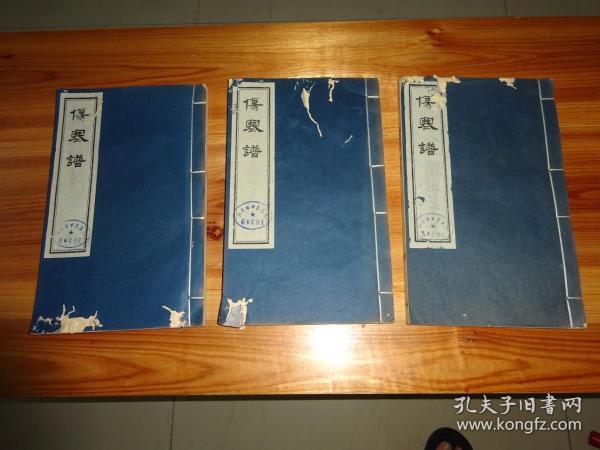 傷寒譜
傷寒譜
傷寒譜
孔夫子旧书网
www.kongfz.com